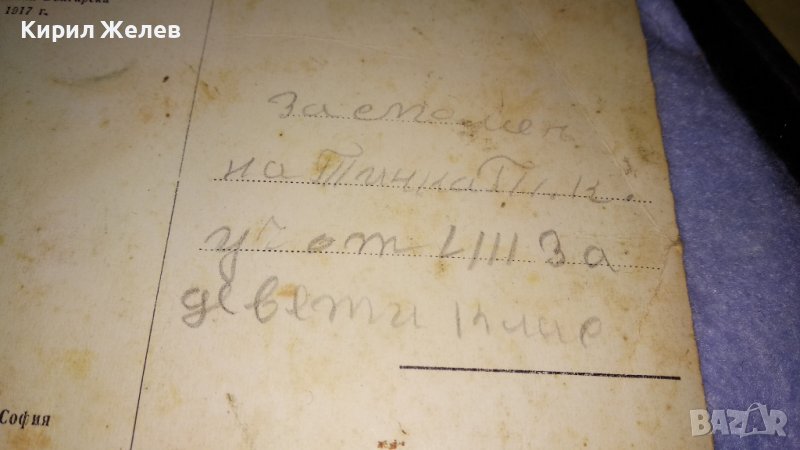 1917 г.
Кирил Желев
За спомен
на Тинка П. К.
уч от VIII За
девети клас
София
BAZAR